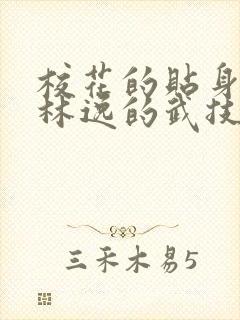 校花的贴身
林逸的武技
三禾木易5